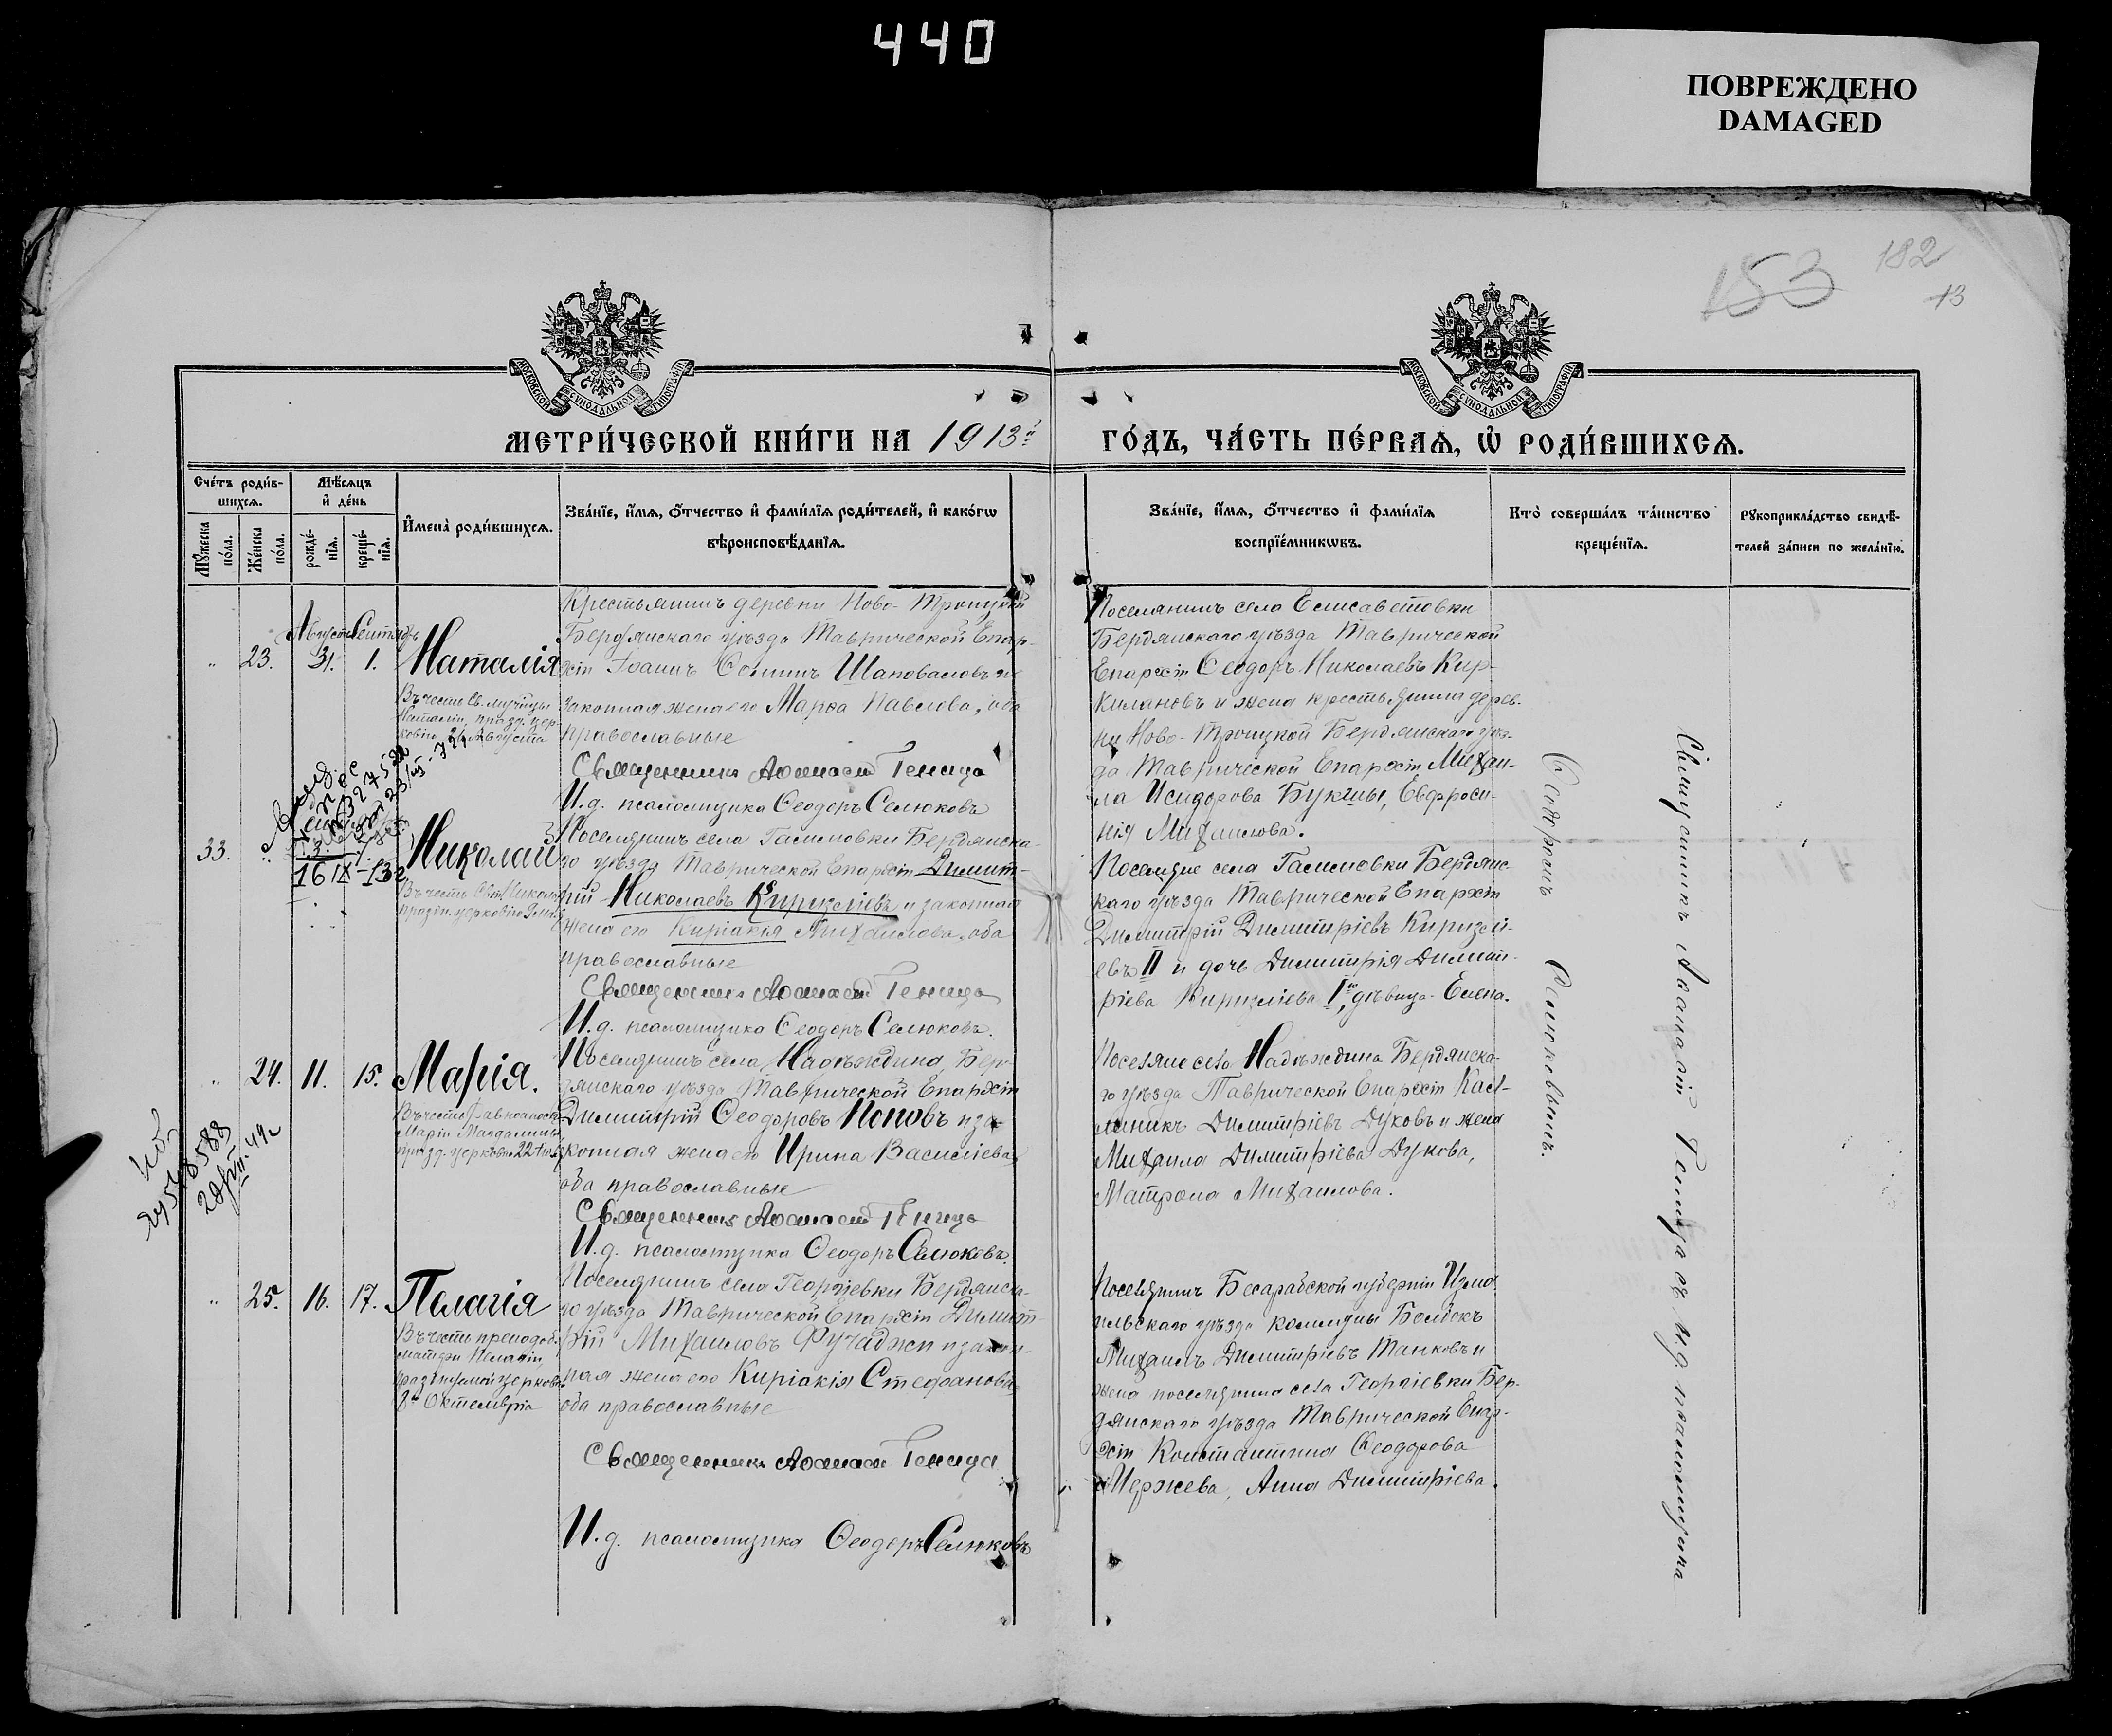 440
ПОВРЕЖДЕНО
DAMAGED
153
182
13
МОСКОВСКОЙ СѴНОДАЛЬНОЙ ТИПОГРАФІИ
МОСКОВСКОЙ СѴНОДАЛЬНОЙ ТИПОГРАФІИ
МЕТРИ́ЧЕСКОЙ КНИ́ГИ НА 1913й
ГО́ДЪ, ЧА́СТЬ ПЕ́РВАѦ, Ѡ҆ РОДИ́ВШИХСѦ.
Сче́тъ роди́в-
шихсѧ.
Мѣ́сѧцъ
и҆ де́нь
Мꙋ́жеска по́ла.
Же́нска по́ла.
рожде́-
нїѧ.
креще́-
нїѧ.
И҆мена̀ роди́вшихсѧ.
Зва́нїе, и҆́мѧ, ѻ҆́тчество и҆ фами́лїѧ роди́телей, и҆ како́гѡ
вѣроисповѣ́данїѧ.
Зва́нїе, и҆́мѧ, ѻ҆́тчество и҆ фами́лїѧ
воспрїе́мникѡвъ.
Кто̀ соверша́лъ та́инство
креще́нїѧ.
Рꙋкоприкла́дство свидѣ́-
телей за́писи по жела́нїю.
Августъ Сентябрь
" 23. 31. 1. Наталія
Въ честь Св. мучицы
Наталіи, празд. цер-
ковію 26 Августа
Крестьянинъ деревни Ново-Троицкой
Бердянскаго уѣзда Таврической Епар-
хіи Іоаннъ Шаповаловъ и
законная жена его Марѳа Павлова, оба
православные
Священникъ Аѳанасій Геница
И.д. псаломщика Ѳеодоръ Селюковъ
Поселянинъ села Елисаветовки
Бердянскаго уѣзда Таврической
Епархіи Ѳеодоръ Николаевъ Кир-
килановъ и жена крестьянина дерев-
ни Ново-Троицкой Бердянскаго уѣз-
да Таврической Епархіи Михаи-
ла Исидорова Евфроси-
нія Михаилова.
33. " Николай
16 IX-13г
Поселянинъ села Гасиловки Бердянска-
го уѣзда Таврической Епархіи Димит-
рій Николаевъ и законная
жена его Киріакія Михаилова, оба
православные
Священникъ Аѳанасій Геница
И.д. псаломщика Ѳеодоръ Селюковъ.
Поселяне села Гасиловки Бердянс-
каго уѣзда Таврической Епархіи
Димитрій Димитріевъ Киризлі-
евъ II и дочь Димитрія Димит-
ріева Киризліева Iго, дѣвица Елена.
" 24. 11. 15. Марія.
Въ честь Равноапост.
Маріи Магдалины
празд. церковію 22 Іюля
Поселянинъ села Надеждина, Бер-
дянскаго уѣзда Таврической Епархіи
Димитрій Ѳеодоровъ Поповъ и за-
конная жена его Ирина Василіева,
оба православные
Священникъ Аѳанасій Геница
И.д. псаломщика Ѳеодоръ Селюковъ.
Поселяне села Надѣждина Бердянска-
го уѣзда Таврической Епархіи Кал-
линикъ Димитріевъ Духовъ и жена
Михаила Димитріева Дукова,
Матрона Михаилова.
" 25. 16. 17. Пелагія
Въ честь преподоб.
матери Пелагіи
празднуемой церков.
8го Октемвріа
Поселянинъ села Георгіевки Бердянска-
го уѣзда Таврической Епархіи Димит-
рій Михаиловъ Фучаджи и закон-
ная жена его Киріакія Стефанова
оба православные
Священникъ Аѳанасій Геница
И.д. псаломщика Ѳеодоръ Селюковъ
Поселянинъ Бесарабской губерніи Изма-
ильскаго уѣзда колоніи
Михаилъ Димитріевъ Танковъ и
жена поселянина села Георгіевки Бер-
дянскаго уѣзда Таврической Епар-
хіи Константина Ѳеодорова
Анна Димитріева.
Священникъ Аѳанасій Геница съ и.д. псаломщика
Ѳеодоромъ Селюковымъ.